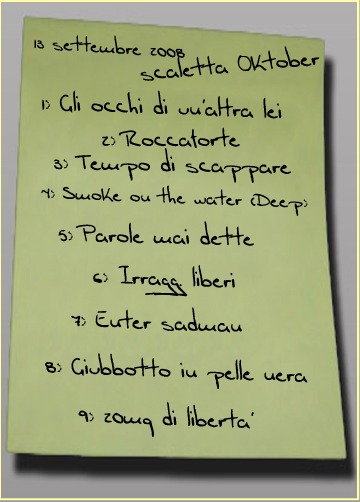 13 settembre 2008
scaletta OKtober
1) Gli occhi di un'altra lei
2) Roccaforte
3) Tempo di scappare
4) Smoke on the water (Deep)
5) Parole mai dette
6) Irragg. liberi
7) Enter sadman
8) Giubbotto in pelle nera
9) 20mg di liberta'